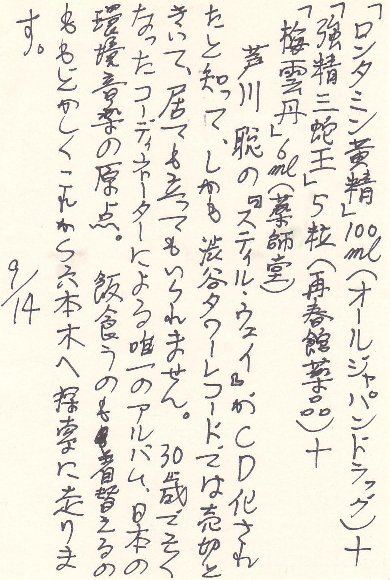 「ロンタミン黄精」100ml(オールジャパンドラッグ)+
「強精三蛇王」5粒(再春館薬品)+
「梅雲丹」6ml(薬師堂)
芦川 聡の『スティル・ウェイ』がCD化され
たと知って、しかも渋谷タワーレコードでは売切と
きいて、居ても立ってもいられません。30歳で亡く
なったコーディネーターによる唯一のアルバム、日本の
環境音楽の原点。 飯食うのも着替えるの
ももどかしくこれから六本木へ探索に走りま
す。
9/14